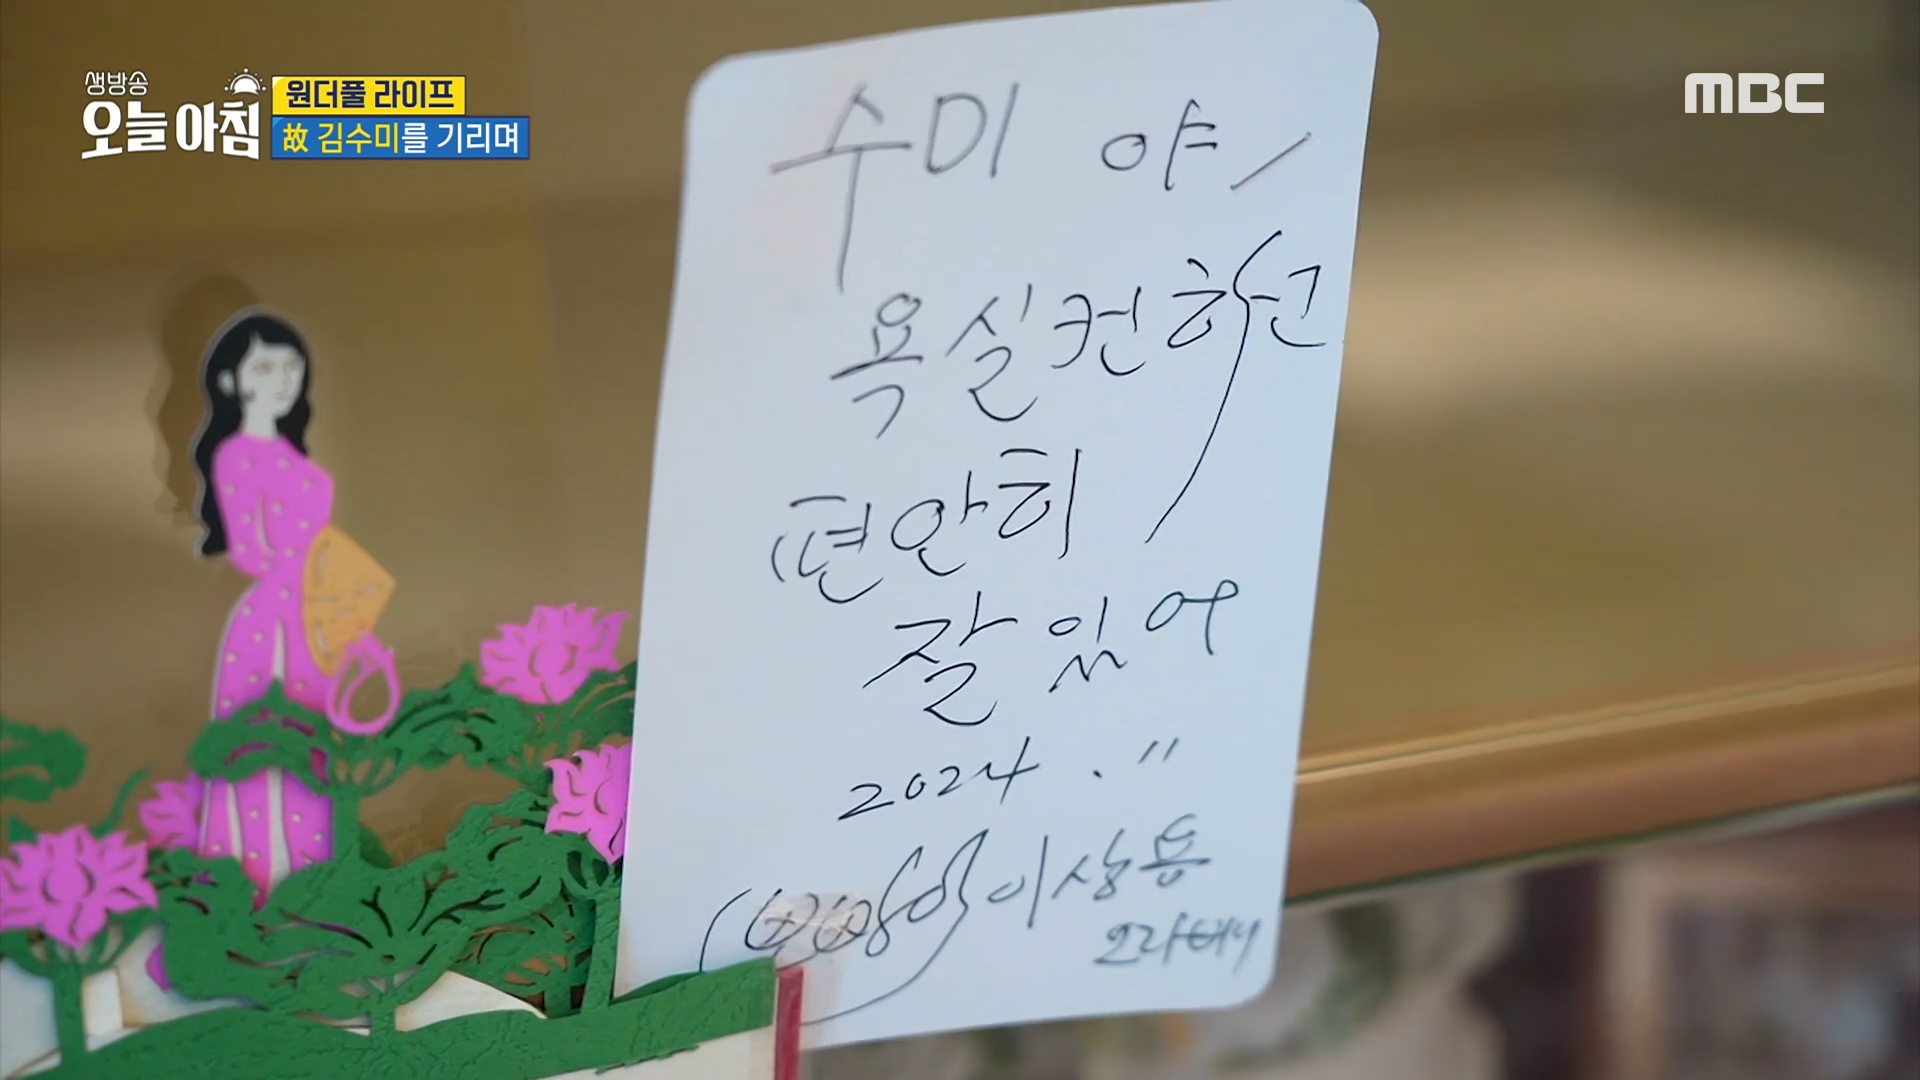 생방송
오늘 아침
원더풀 라이프
故 김수미를 기리며
MBC
수미 야
욕실컨하고
편안히
잘 있어
2024 . 11
이상용
오라버니